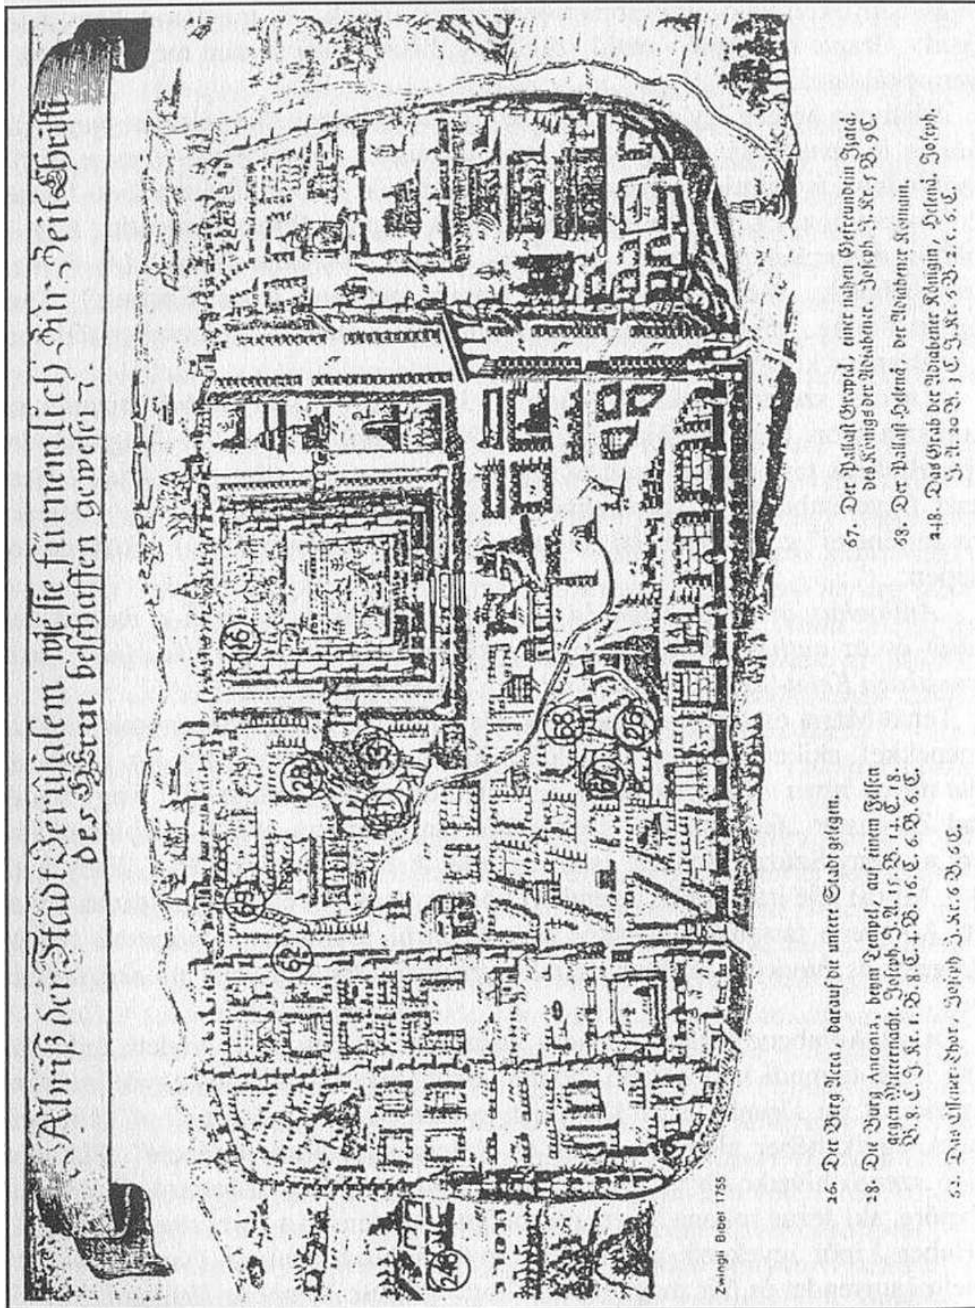 Abriß der Stadt Jerusalem wie sie fürnemlich zur Zeit Christi
des HErrn beschaffen gewesen
16
28
43
41
63
62
68
26
67
248
Zwingi Basel 1755
26. Der Berg Acra, darauf die untere Stadt gelegen.
28. Die Burg Antonia, beym Tempel, auf einem Felsen
gegen Mitternacht. Joseph. J. A. 15 B. C. 8.
B. 8. C. J. Kr. 1 B. 8 C. 2. B. 16 C. 6. B. 6. C.
63. Joseph. J. Kr. 6 B. 6 C.
67. Der Pallast Grapte, einer nahen
des Königs der Adiabener. Joseph. J. Kr. 5 B. 9 C.
68. Der Pallast-Helenä, der Adiabener
248. Das Grab der Adiabener Königin, Helenä. Joseph.
J. A. 20 B. C. J. Kr. 6. B. 2. c. 6. C.